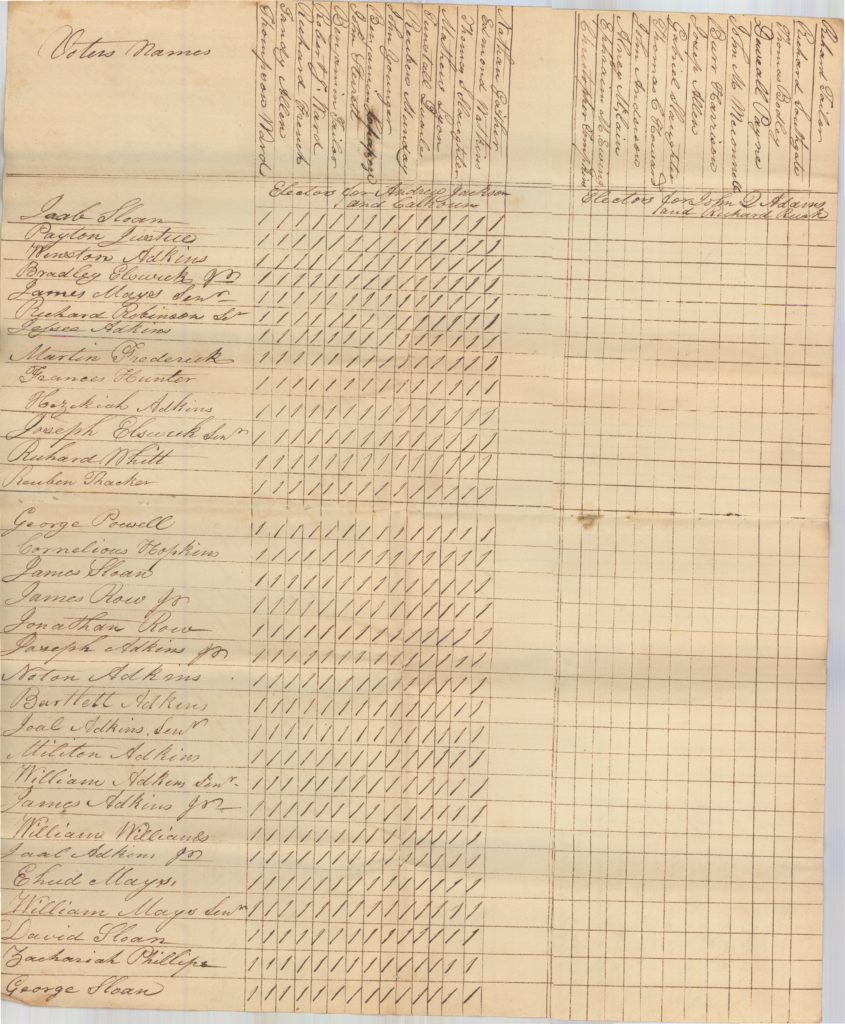 Voters Names
Thompson Ward
Tandy Allen
Richard French
Robert J. Ward
Benjamin Tailor
John Sterett
Benjamin Chapeze
John Younger
Reubin Munday
Tunstall Quarles
Mathews Lyon
Thomas S Slaughter
Edmond Watkins
Nathan Gaither
Electors for Andrew Jackson
and Calhoun
Christopher Compton
Ephraim M Ewing
Alney McLain
John Anderson
Thomas C Howard
Gabriel Slaughter
Joseph Allen
Burr Harrison
John M McConnell
Duvall Payne
Thomas Bodley
Richard Southgate
Richard Tailor
Electors for John Q Adams
and Richard Rush
Jacob Sloan
Payton Justice
Winston Adkins
Bradley Elswick Jr
James Mays Senr
Richard Robinson Sr
Jessee Adkins
Martin Frederick
Frances Hunter
Hezekiah Adkins
Joseph Elswick Senr
Richard Whitt
Reuben Thacker
George Powell
Cornelious Hopkins
James Sloan
James Row Jr
Jonathan Row
Joseph Adkins Jr
Noton Adkins
Bartlett Adkins
Joal Adkins Senr
Militon Adkins
William Adkins Senr
James Adkins Jr
William Williams
Joal Adkins Jr
Ehud Mays
William Mays Senr
David Sloan
Zachariah Phillips
George Sloan